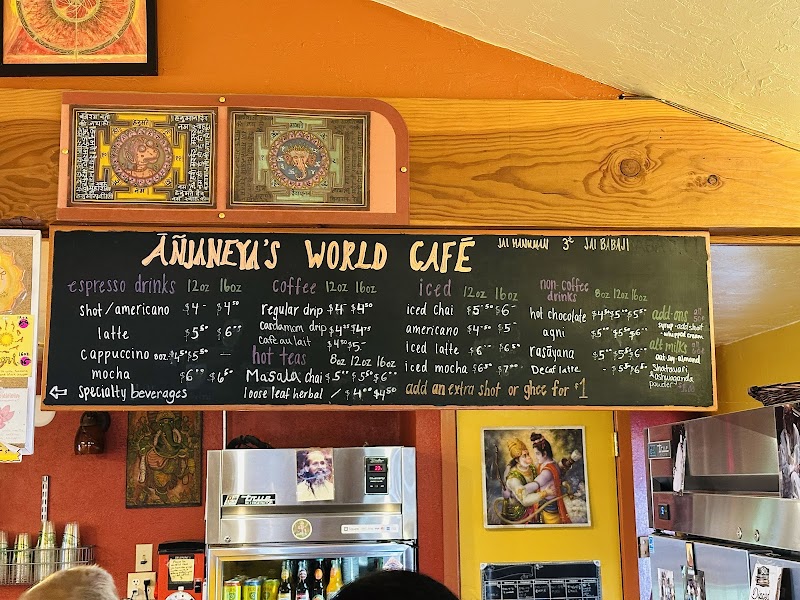 ĀÑJANEYA'S WORLD CAFÉ
JAI HANUMAN 3ૐ JAI BABAJI
espresso drinks 12oz 16oz
shot/americano $4- $4⁵⁰
latte $5⁵⁰ $6⁰⁰
cappuccino 8oz $4⁵⁰ $5⁵⁰ —
mocha $6⁰⁰ $6⁵⁰
← specialty beverages
coffee 12oz 16oz
regular drip $4- $4⁵⁰
cardamom drip $4²⁵ $4⁷⁵
cafe au lait $4⁵⁰ $5-
hot teas 8oz 12oz 16oz
Masala chai $5⁰⁰ $5⁵⁰ $6⁰⁰
loose leaf herbal / $4⁰⁰ $4⁵⁰
iced 12oz 16oz
iced chai $5⁵⁰ $6-
americano $4⁵⁰ $5-
iced latte $6⁰⁰ $6⁵⁰
iced mocha $6⁵⁰ $7⁰⁰
add an extra shot or ghee for $1
non-coffee
drinks 8oz 12oz 16oz
hot chocolate
agni
rasāyana
Decaf latte
add-ons
syrup-add shot
-whipped cream
alt milks
oat-soy-almond
Shatavari
Ashwaganda
powder
true